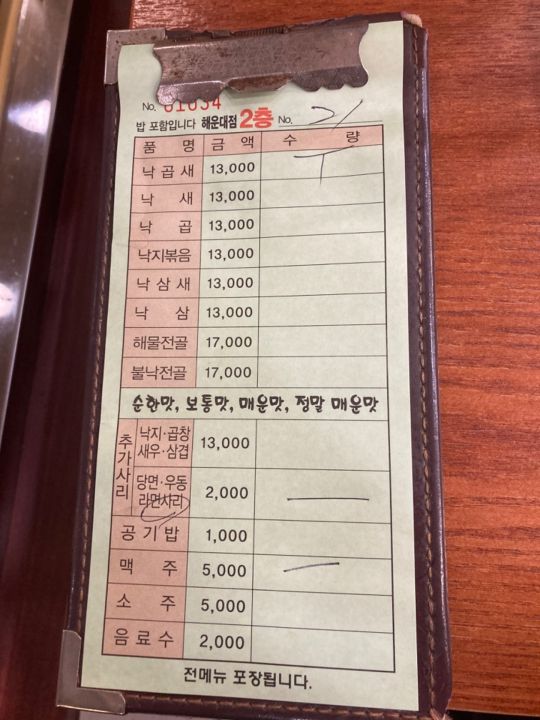 No. 01034
밥 포함입니다 해운대점 2층 No. 21
품 명 금 액 수 량
낙 곱 새 13,000 T
낙 새 13,000
낙 곱 13,000
낙지볶음 13,000
낙 삼 새 13,000
낙 삼 13,000
해물전골 17,000
불낙전골 17,000
순한맛, 보통맛, 매운맛, 정말 매운맛
추가사리
낙지·곱창
새우·삼겹 13,000
당면·우동
라면사리 2,000 一
공 기 밥 1,000
맥 주 5,000 一
소 주 5,000
음 료 수 2,000
전메뉴 포장됩니다.